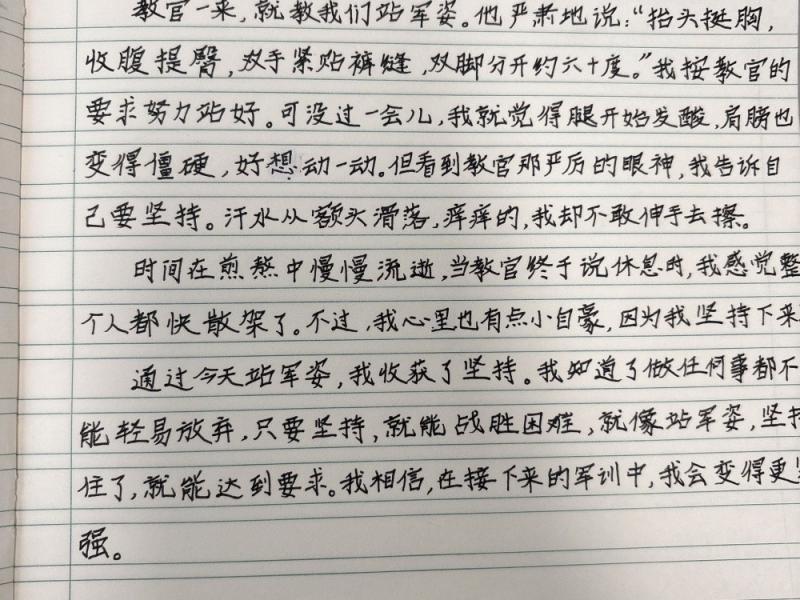 教官一来，就教我们站军姿。他严肃地说：“抬头挺胸，
收腹提臀，双手紧贴裤缝，双脚分开约六十度。”我按教官的
要求努力站好。可没过一会儿，我就觉得腿开始发酸，肩膀也
变得僵硬，好想动一动。但看到教官那严厉的眼神，我告诉自
己要坚持。汗水从额头滑落，痒痒的，我却不敢伸手去擦。
时间在煎熬中慢慢流逝，当教官终于说休息时，我感觉整
个人都快散架了。不过，我心里也有点小自豪，因为我坚持下来
通过今天站军姿，我收获了坚持。我知道了做任何事都不
能轻易放弃，只要坚持，就能战胜困难，就像站军姿，坚持
住了，就能达到要求。我相信，在接下来的军训中，我会变得更坚
强。